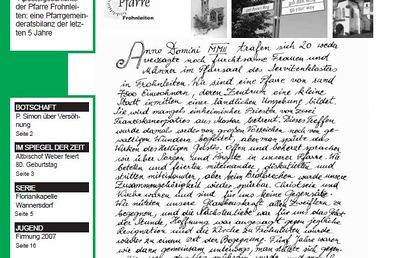 der Pfarre Frohnlei-
ten: eine Pfarrgemein-
deratsbilanz der letz-
ten 5 Jahre
Pfarre
Frohnleiten
BOTSCHAFT
P. Simon über Versöh-
nung
Seite 2
IM SPIEGEL DER ZEIT
Altbischof Weber feiert
80. Geburtstag
Seite 3
SERIE
Florianikapelle
Wannersdorf
Seite 5
JUGEND
Firmung 2007
Seite 16
Anno Domini MMII trafen sich 20 weder
verzagte noch furchtsame Frauen und
Männer im Pfarrsaal des Servitenklosters
in Frohnleiten. Wir sind eine Pfarre von rund
7500 Einwohnern, deren Zentrum eine kleine
Stadt inmitten einer ländlichen Umgebung bildet.
Sie wird mangels einheimischer Priester von zwei
Franziskanerpatres aus Mostar betreut. Dieses Treffen
wurde damals weder von großen Vorzeichen noch von ge-
waltigen Wundern begleitet, aber man spürte vom
Wirken des Heiligen Geistes. Offen und beherzt sprachen
wir über Sorgen und Ängste in unserer Pfarre. Wir
beteten und feierten miteinander, und
stritten miteinander, aber beim Brotbrechen wurde unsere
Zusammengehörigkeit wieder spürbar. Christsein und
Kirche waren und sind für uns keine Gegensätze.
Wir nützten unsere Glaubenskraft allen Zweiflern zu
begegnen, und die Nächstenliebe war für uns das Gebot
der Stunde. Hoffnung war angesagt gegen jegliche
Resignation und die Kirche zu Frohnleiten wurde
wieder zu einem Ort der Begegnung. Fünf Jahre waren
wir diese gemeinsam unterwegs, man stellte sich gegen-